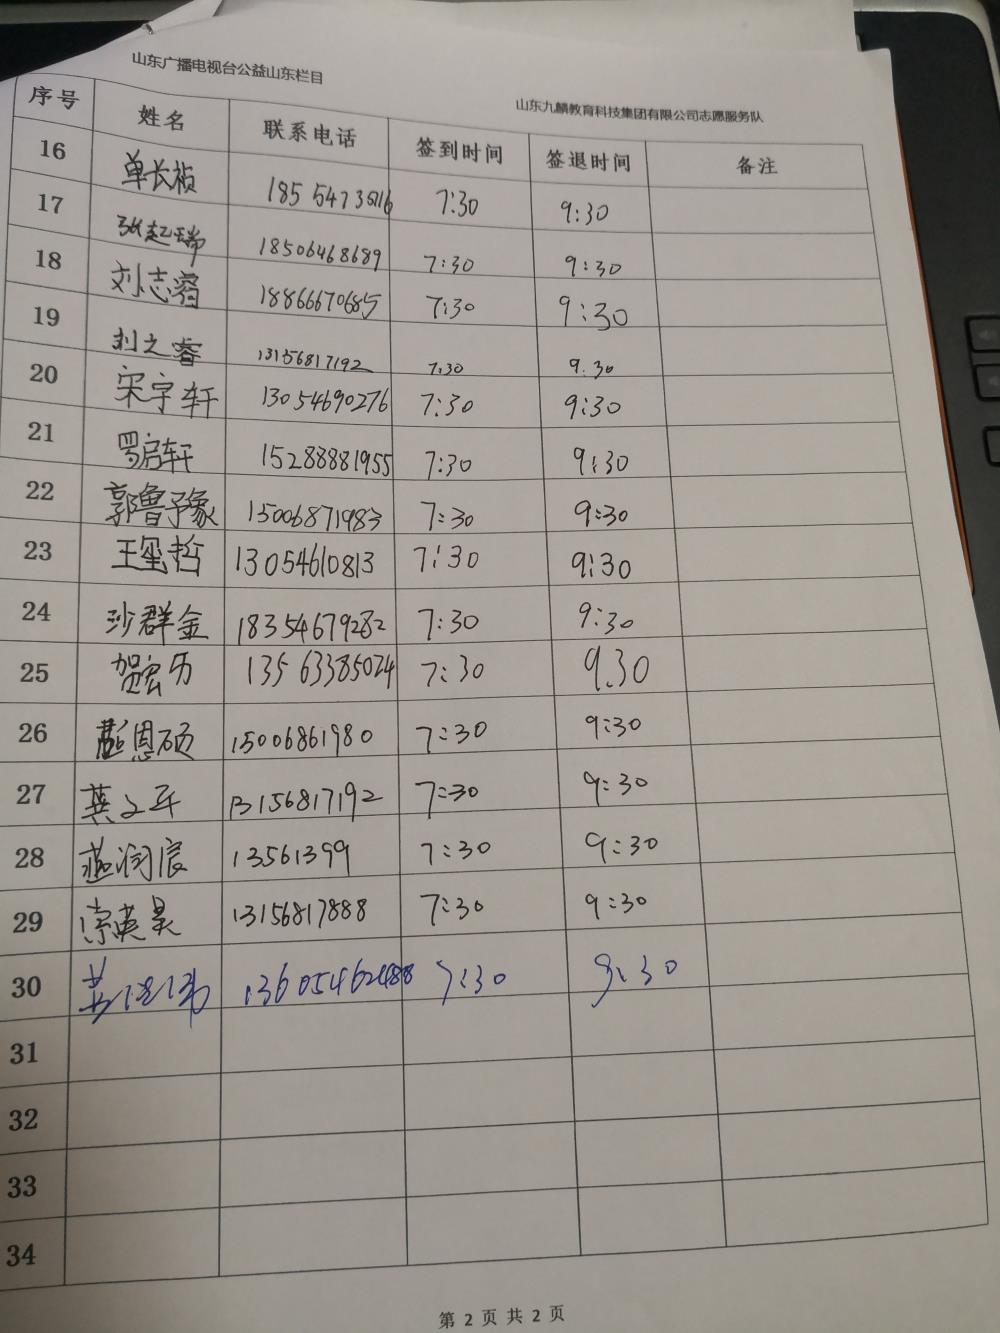 山东广播电视台公益山东栏目
山东九麟教育科技集团有限公司志愿服务队
序号 姓名 联系电话 签到时间 签退时间 备注
16 单长祯 185 7:30 9:30
17 张赵瑞 18506468689 7:30 9:30
18 刘志睿 18866670685 7:30 9:30
19 刘之睿 13156817192 7:30 9:30
20 宋宇轩 13054690276 7:30 9:30
21 启轩 15288881955 7:30 9:30
22 郭鲁豫 15006871983 7:30 9:30
23 王玺哲 13054610813 7:30 9:30
24 沙群金 18354679282 7:30 9:30
25 贺宏历 13563385024 7:30 9.30
26 恩硕 15006861980 7:30 9:30
27 13156817192 7:30 9:30
28 燕润宸 13561399 7:30 9:30
29 英昊 13156817888 7:30 9:30
30 13605462488 7:30 9:30
31
32
33
34
第 2 页 共 2 页